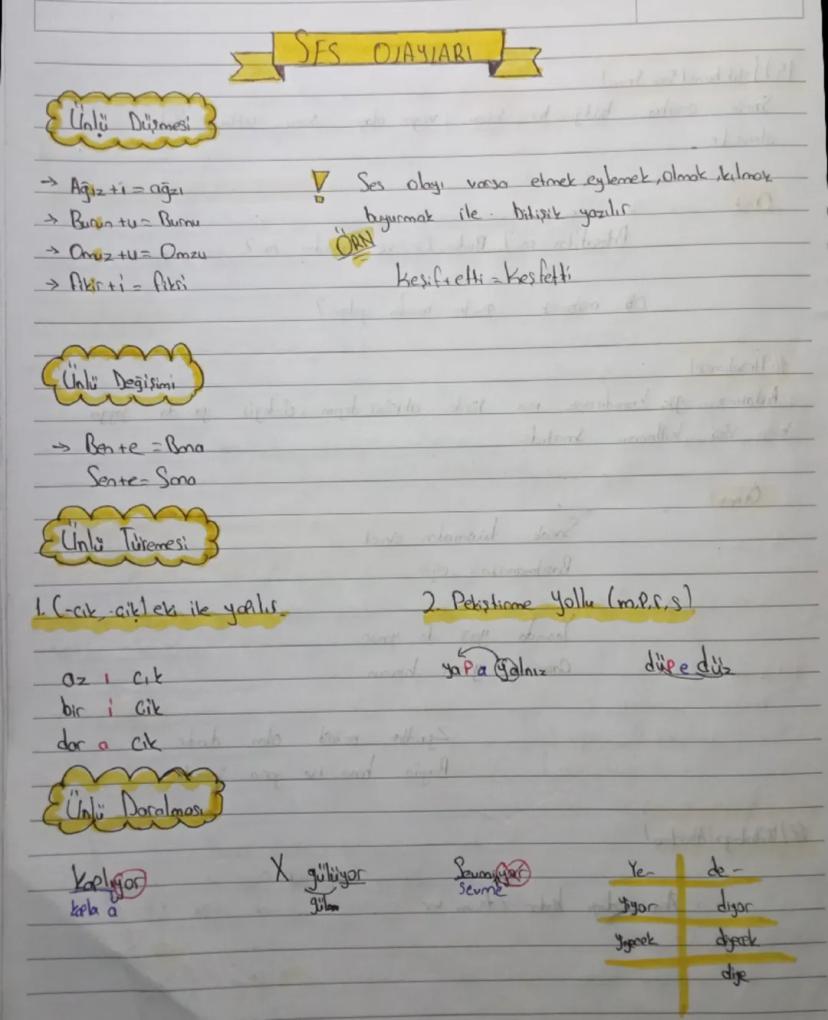 SES OLAYLARI
Ünlü Düşmesi
→ Ağız+ı = ağzı
→ Burun+u = Burnu
→ Omuz+u = Omzu
→ Fikir+i = Fikri
! Ses olayı varsa etmek, eylemek, olmak, kılmak
buyurmak ile bitişik yazılır
ÖRN
keşif+etti = keşfetti
Ünlü Değişimi
→ Ben+e = Bana
Sen+e = Sana
Ünlü Türemesi
1. (-cık, -cik) eki ile yapılır.
az ı cık
bir i cik
dar a cık
2. Pekiştirme Yollu (m,p,r,s)
yapayalnız düpedüz
Ünlü Daralması
Kaplıyor X gülüyor Sevmiyor
kapla a gül sevme
Ye- de-
yiyor diyor
yiyecek diyecek
diye